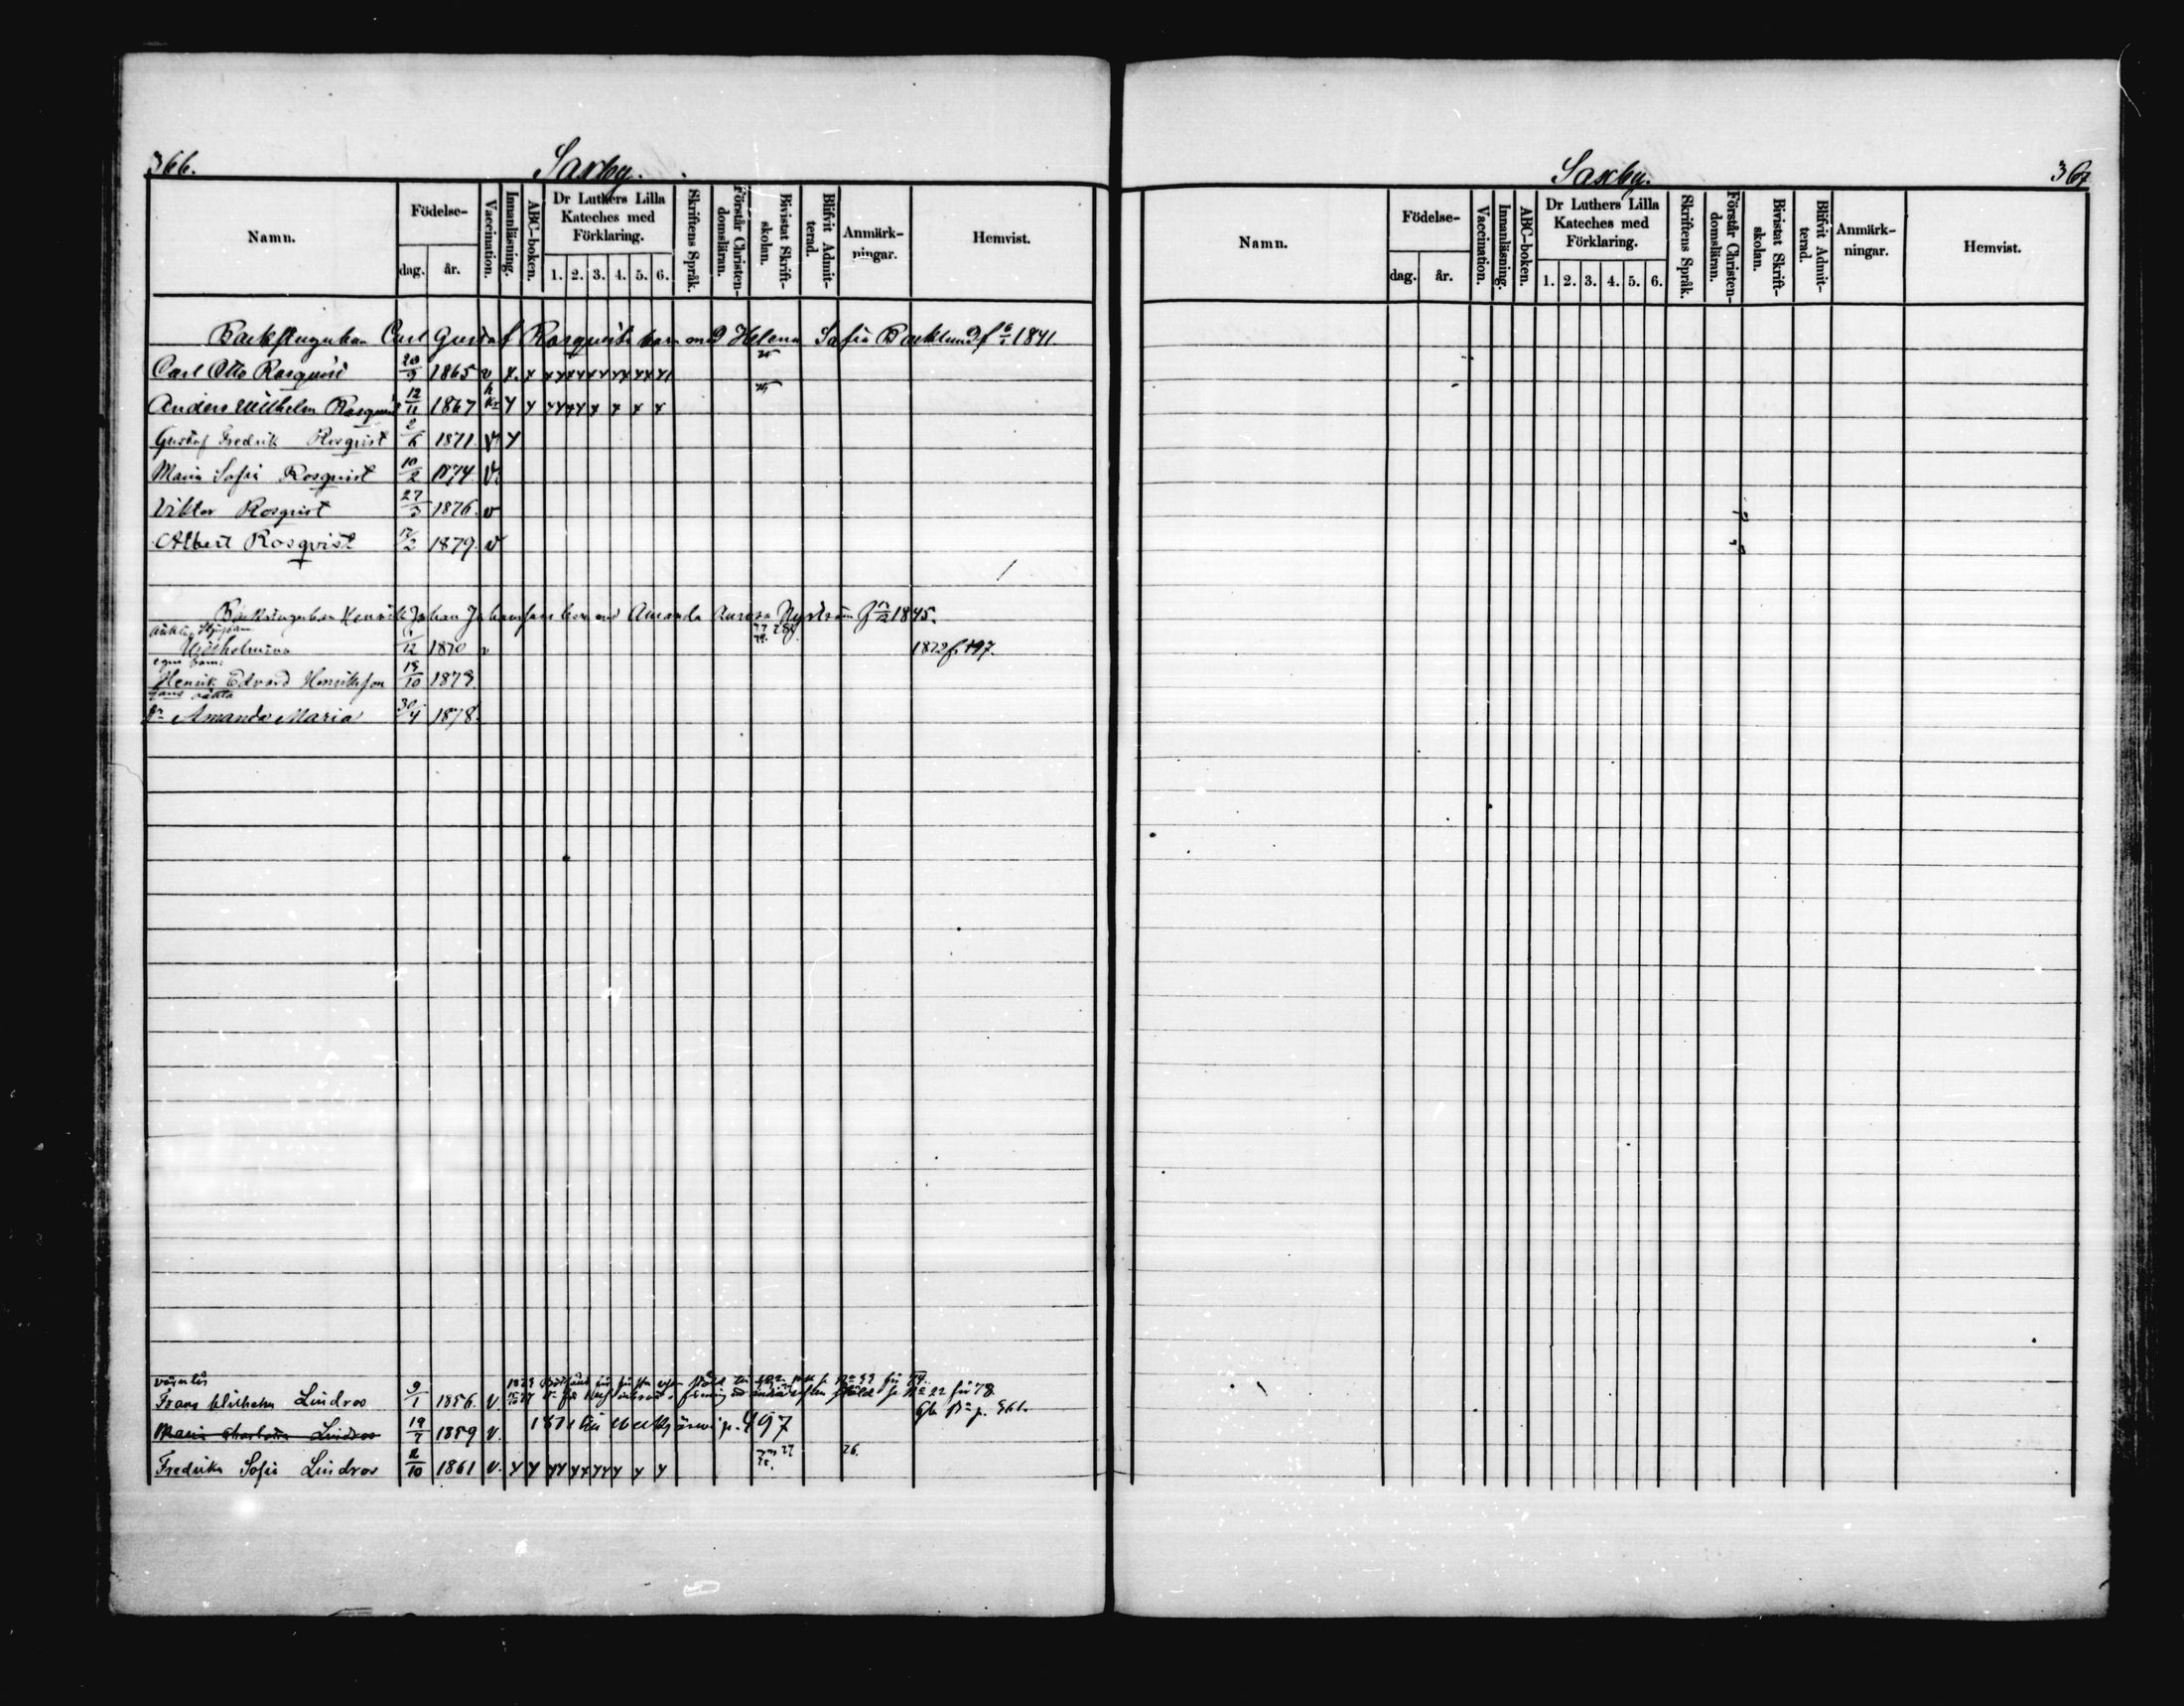 366.
Saxby.
Namn.
Födelse-
dag.
år.
Vaccination.
Innanläsning.
ABC-boken.
Dr Luthers Lilla
Kateches med
Förklaring.
1. 2. 3. 4. 5. 6.
Skriftens Språk.
Förstår Christen-
domsläran.
Bivistat Skrift-
skolan.
Blifvit Admit-
terad.
Anmärk-
ningar.
Hemvist.
Carl Gustaf Rosqvists barn med Helena Sofia Backlund f 6/1 1841.
Carl Otto Rosquist 20/9 1865 v x. x
Anders Wilhelm Rosquist 12/11 1867
Gustaf Fredrik Rosqvist 2/6 1871 v
Maria Sofia Rosqvist 10/2 1874 v
Viktor Rosqvist 27/3 1876. v
Albert Rosqvist 17/2 1879. v
Henrik Johan Johanssons barn med Amanda Aurora Nyström 1845.
Wilhelmina /12 1870 v 1872 f. 497.
egna barn:
Henrik Edvard Henriksson /10 1873.
oäkta
Amanda Maria 30/4 1878.
Frans Wilhelm Lindroos 9/1 1856. v
Maria Charlotta Lindroos 19/7 1859 v. 1871 till p. 497
Fredrika Sofia Lindroos 2/10 1861 v. 76.
Saxby.
367
Namn.
Födelse-
dag.
år.
Vaccination.
Innanläsning.
ABC-boken.
Dr Luthers Lilla
Kateches med
Förklaring.
1. 2. 3. 4. 5. 6.
Skriftens Språk.
Förstår Christen-
domsläran.
Bivistat Skrift-
skolan.
Blifvit Admit-
terad.
Anmärk-
ningar.
Hemvist.